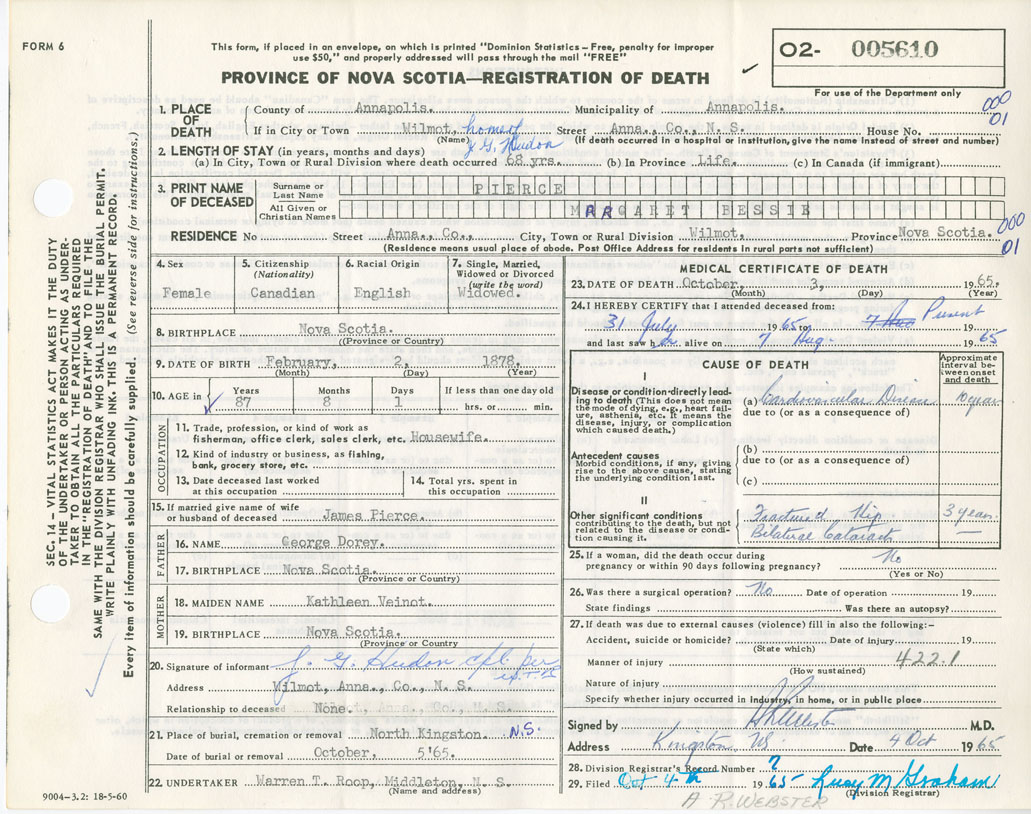 FORM 6
This form, if placed in an envelope, on which is printed "Dominion Statistics – Free, penalty for improper
use $50," and properly addressed will pass through the mail "FREE"
PROVINCE OF NOVA SCOTIA—REGISTRATION OF DEATH
O2- 005610
For use of the Department only
000
01
1. PLACE OF DEATH County of Annapolis. Municipality of Annapolis.
If in City or Town Wilmot, home of J. G. Hudon Street Anna., Co., N. S. House No.
(Name) (If death occurred in a hospital or institution, give the name instead of street and number)
2. LENGTH OF STAY (in years, months and days)
(a) In City, Town or Rural Division where death occurred 68 yrs. (b) In Province Life. (c) In Canada (if immigrant)
3. PRINT NAME OF DECEASED Surname or Last Name PIERCE
All Given or Christian Names MARGARET BESSIE
RESIDENCE No Street Anna., Co., City, Town or Rural Division Wilmot, Province Nova Scotia.
000
01
(Residence means usual place of abode. Post Office Address for residents in rural parts not sufficient)
4. Sex Female
5. Citizenship (Nationality) Canadian
6. Racial Origin English
7. Single, Married, Widowed or Divorced (write the word) Widowed.
8. BIRTHPLACE Nova Scotia.
(Province or Country)
9. DATE OF BIRTH February, 2, 1878.
(Month) (Day) (Year)
10. AGE in Years 87 Months 8 Days 1 If less than one day old hrs. or min.
OCCUPATION
11. Trade, profession, or kind of work as
fisherman, office clerk, sales clerk, etc. Housewife.
12. Kind of industry or business, as fishing,
bank, grocery store, etc.
13. Date deceased last worked at this occupation
14. Total yrs. spent in this occupation
15. If married give name of wife
or husband of deceased James Pierce.
FATHER
16. NAME George Dorey.
17. BIRTHPLACE Nova Scotia.
(Province or Country)
MOTHER
18. MAIDEN NAME Kathleen Veinot.
19. BIRTHPLACE Nova Scotia.
(Province or Country
20. Signature of informant J. G. Hudon cpl per
Address Wilmot, Anna., Co., N. S.
Relationship to deceased None.
21. Place of burial, cremation or removal North Kingston. N.S.
Date of burial or removal October, 5'65.
22. UNDERTAKER Warren T. Roop, Middleton, N. S.
(Name and address)
9004-3.2: 18-5-60
MEDICAL CERTIFICATE OF DEATH
23. DATE OF DEATH October, 3, 1965.
(Month) (Day) (Year)
24. I HEREBY CERTIFY that I attended deceased from:
31 July 1965 to Present 19
and last saw her alive on 7 Aug. 1965
CAUSE OF DEATH
Approximate interval between onset and death
I
Disease or condition directly leading to death (This does not mean the mode of dying, e.g., heart failure, asthenia, etc. It means the disease, injury, or complication which caused death.)
(a) Cardiovascular Disease 10 year
due to (or as a consequence of)
Antecedent causes
Morbid conditions, if any, giving rise to the above cause, stating the underlying condition last.
(b)
due to (or as a consequence of)
(c)
II
Other significant conditions
contributing to the death, but not related to the disease or condition causing it.
Fractured Hip 3 year
Bilateral Cataracts —
25. If a woman, did the death occur during
pregnancy or within 90 days following pregnancy? No
(Yes or No)
26. Was there a surgical operation? No Date of operation 19
State findings Was there an autopsy?
27. If death was due to external causes (violence) fill in also the following:-
Accident, suicide or homicide? Date of injury 19
(State which)
Manner of injury 422.1
(How sustained)
Nature of injury
Specify whether injury occurred in industry, in home, or in public place
Signed by M.D.
Address Kingston, NS. Date 4 Oct 1965
28. Division Registrar's Record Number 7
29. Filed Oct 4th 1965 Lucy M Graham
(Division Registrar)
A R. WEBSTER
SEC. 14 – VITAL STATISTICS ACT MAKES IT THE DUTY
OF THE UNDERTAKER OR PERSON ACTING AS UNDER-
TAKER TO OBTAIN ALL THE PARTICULARS REQUIRED
IN THE "REGISTRATION OF DEATH" AND TO FILE THE
SAME WITH THE DIVISION REGISTRAR WHO SHALL ISSUE THE BURIAL PERMIT.
WRITE PLAINLY WITH UNFADING INK. THIS IS A PERMANENT RECORD.
Every item of information should be carefully supplied. (See reverse side for instructions.)